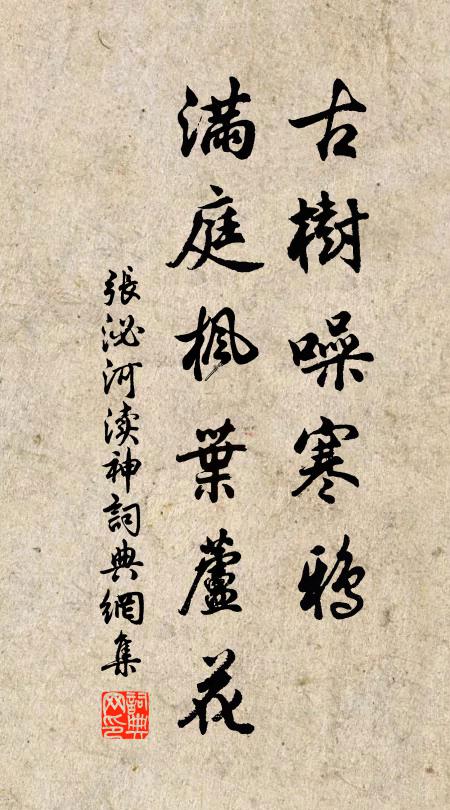 古樹噪寒鴉
滿庭楓葉蘆花
張泌河渎神詞典網集
詞典
网印